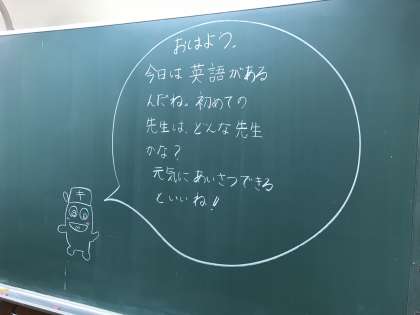 おはよう。
今日は英語がある
んだね。初めての
先生は、どんな先生
かな？
元気にあいさつできる
といいね!!